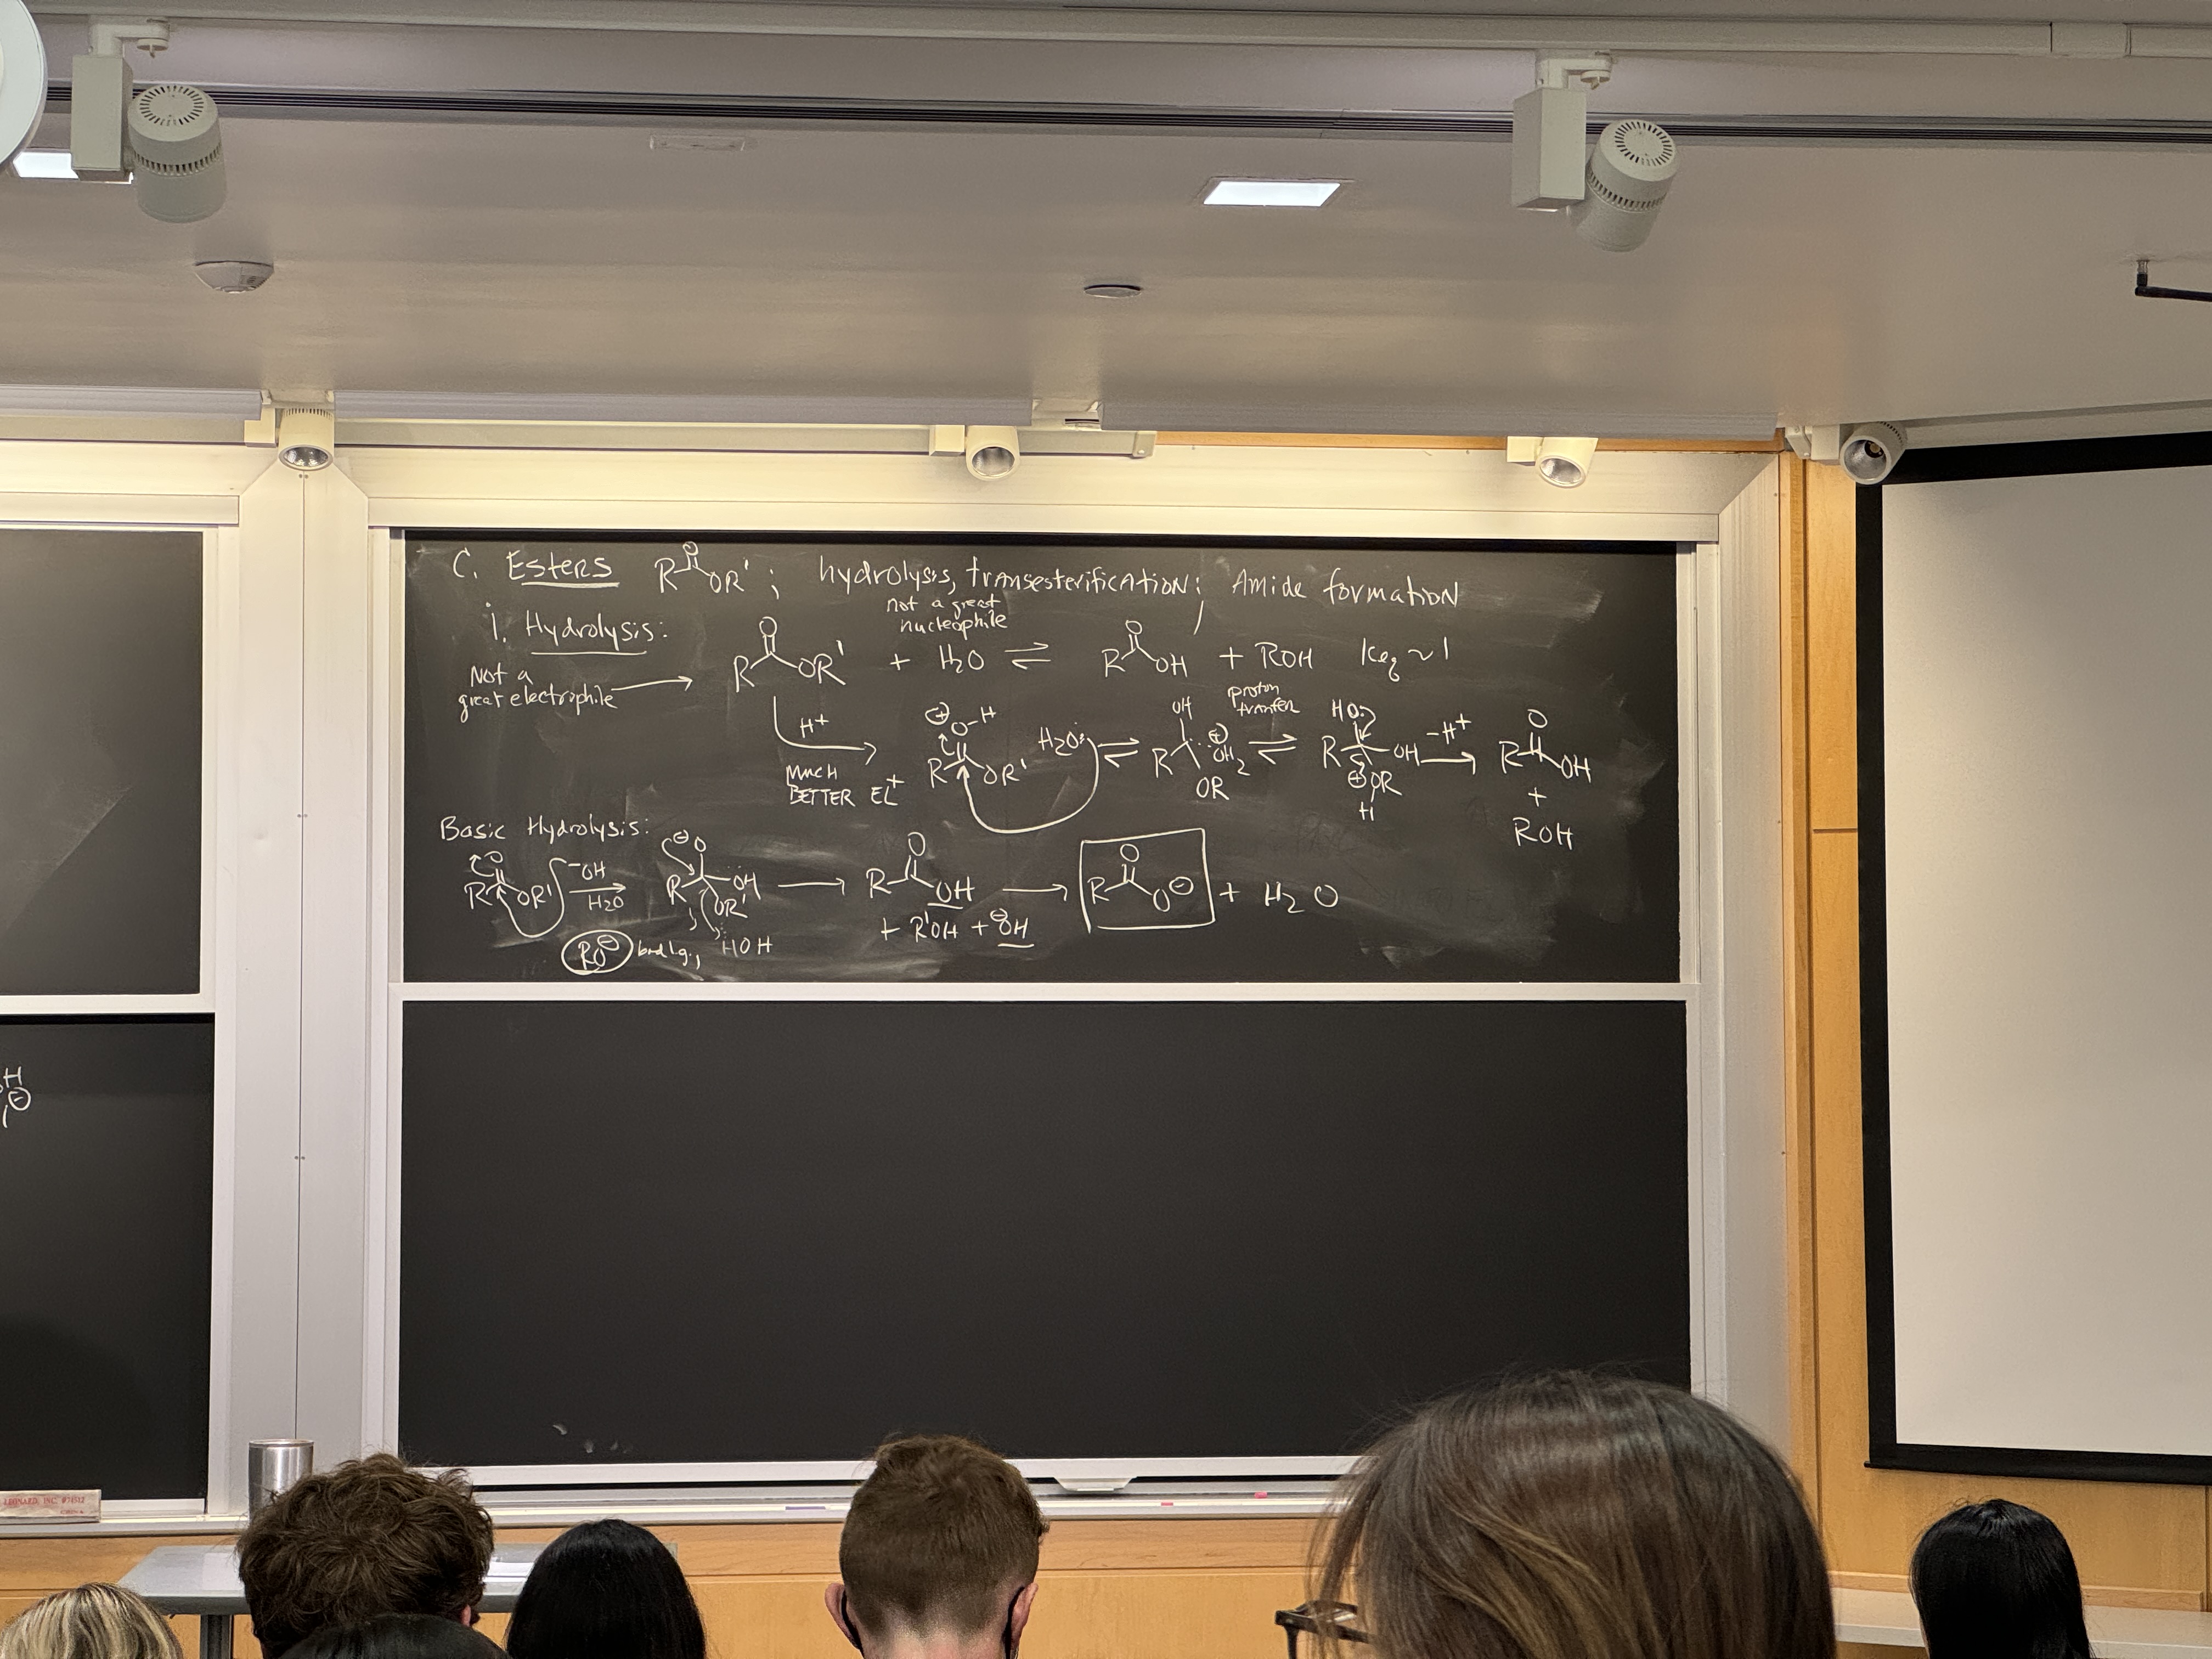 C. Esters R O OR' ; hydrolysis, transesterification; Amide formation
i. Hydrolysis:
not a great
nucleophile
Not a
great electrophile
R O OR' + H2O ⇌ R O OH + ROH Keq ~ 1
H+
MUCH
BETTER EL+
⊕ O-H R OR' H2O: ⇌ OH R ⊕ OH2 OR
proton
tranfer
⇌ HO: R OH ⊕ OR H
-H+
R O OH
+
ROH
Basic Hydrolysis:
R O OR' -OH
H2O
⊖ O R OH OR'
RO⊖ bad l.g., HOH
R O OH
+ R'OH + ⊖OH
R O O⊖ + H2O
H
⊖
LEONARD, INC. #74512